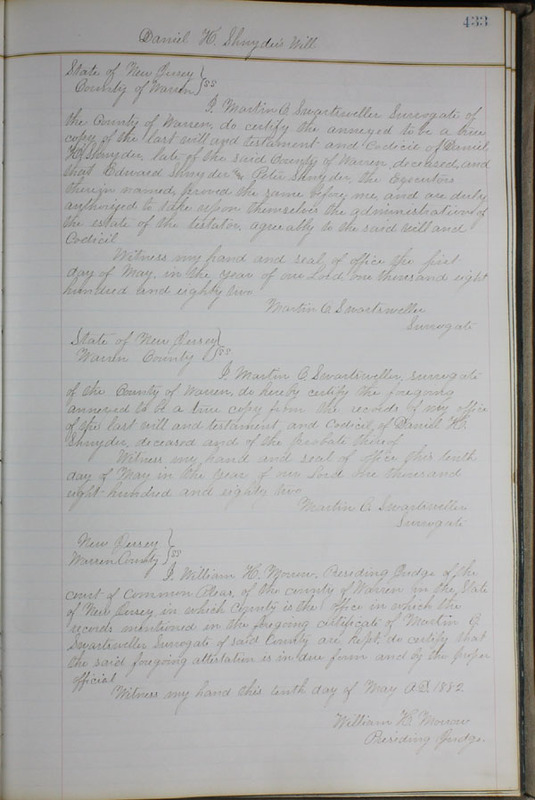 433
Daniel H. Shnyder's Will
State of New Jersey }
County of Warren } SS
I, Martin C. Swartsweller Surrogate of
the County of Warren, do certify the annexed to be a true
copy of the last will and testament and Codicil of Daniel
H. Shnyder, late of the said County of Warren, deceased, and
that Edward Shnyder & Peter Shnyder, the Executors
therein named, proved the same before me, and are duly
authorized to take upon themselves the administration of
the estate of the testator, agreeably to the said will and
Codicil
Witness my hand and seal of office the first
day of May, in the year of our Lord one thousand eight
hundred and eighty two
Martin C. Swartsweller
Surrogate
State of New Jersey }
Warren County } SS
I, Martin C. Swartsweller, surrogate
of the County of Warren, do hereby certify the foregoing
annexed to be a true copy from the records of my office
of the last will and testament, and Codicil, of Daniel H.
Shnyder, deceased and of the probate thereof
Witness my hand and seal of office this tenth
day of May in the year of our Lord one thousand
eight-hundred and eighty two
Martin C. Swartsweller
Surrogate
New Jersey }
Warren County } SS
I, William H. Morrow, Presiding Judge of the
court of Common Pleas, of the county of Warren in the State
of New Jersey in which County is the office in which the
records mentioned in the foregoing certificate of Martin C.
Swartsweller Surrogate of said County are kept, do certify that
the said foregoing attestation is in due form and by the proper
official
Witness my hand this tenth day of May A.D. 1882
William H. Morrow
Presiding Judge.